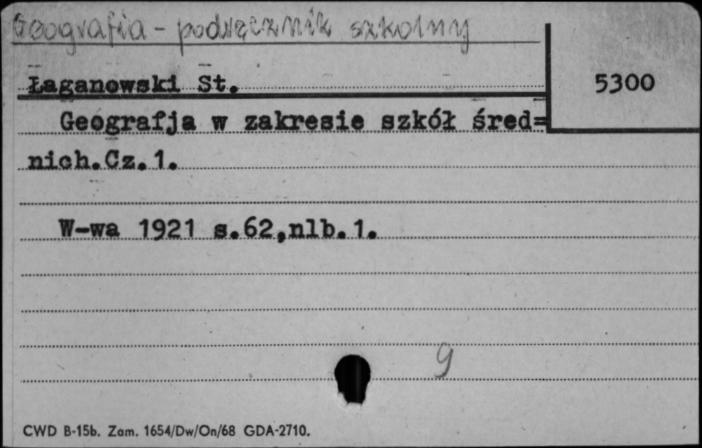 Geografia - podręcznik szkolny
Łaganowski St.
5300
Geografja w zakresie szkół śred=
nich.Cz.1.
W-wa 1921 s.62,nlb.1.
9
CWD B-15b. Zam. 1654/Dw/On/68 GDA-2710.